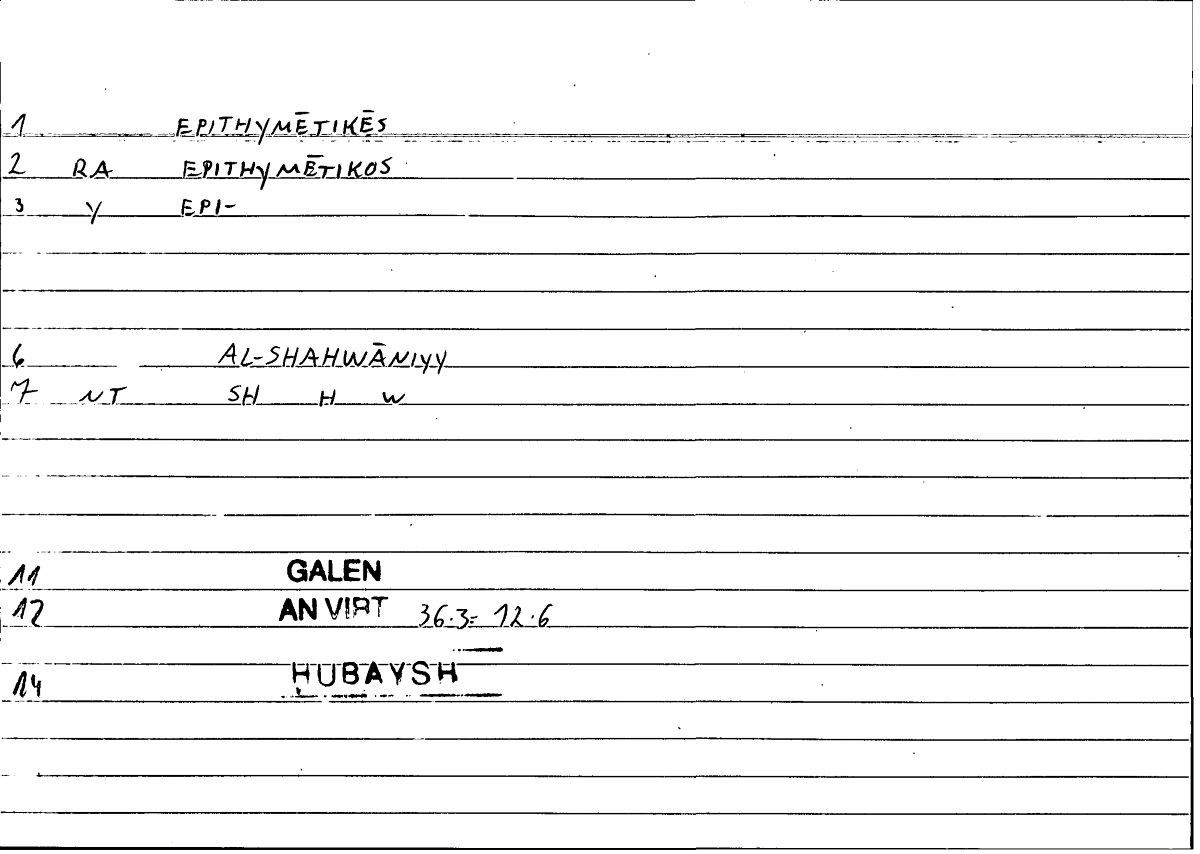 1 EPITHYMĒTIKĒS
2 RA EPITHYMĒTIKOS
3 Y EPI-
6 AL-SHAHWĀNIYY
7 NT SH H W
11 GALEN
12 AN VIRT 36.3= 12.6
14 HUBAYSH